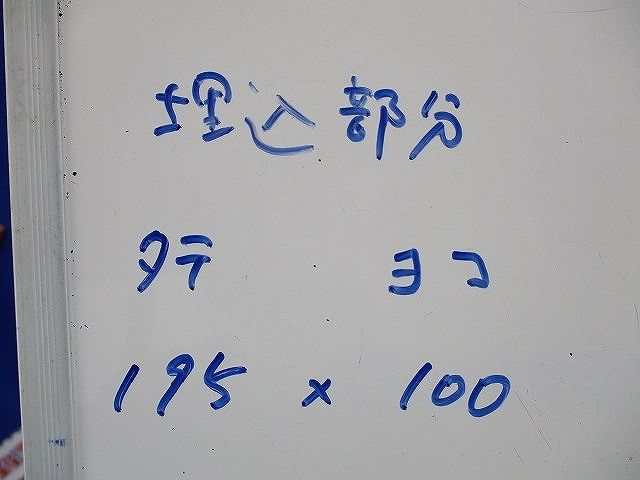 埋込部分
タテ ヨコ
195 × 100